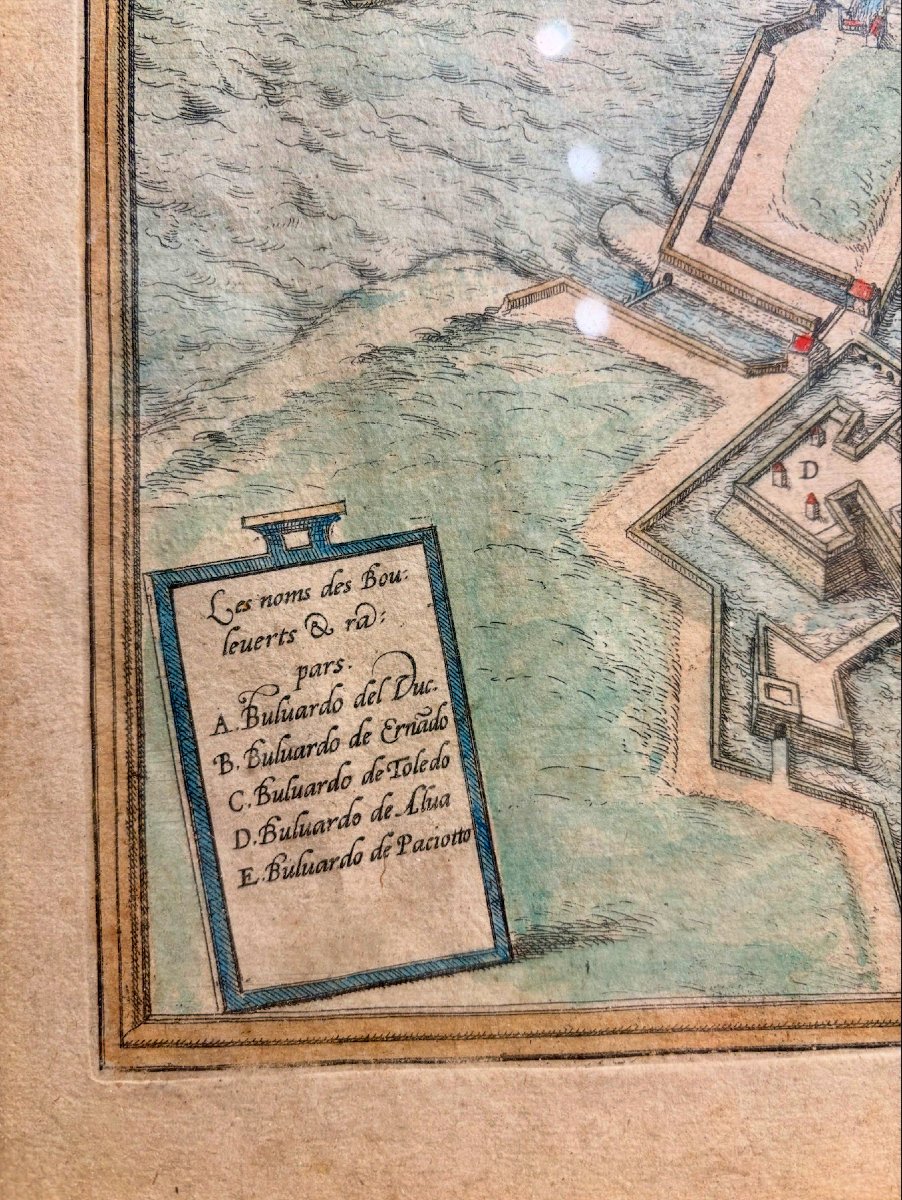 Les noms des Bou:
leuerts & rā:
pars.
A. Buluardo del Duc.
B. Buluardo de Ernādo
C. Buluardo de Toledo
D. Buluardo de Alua
E. Buluardo de Paciotto
D